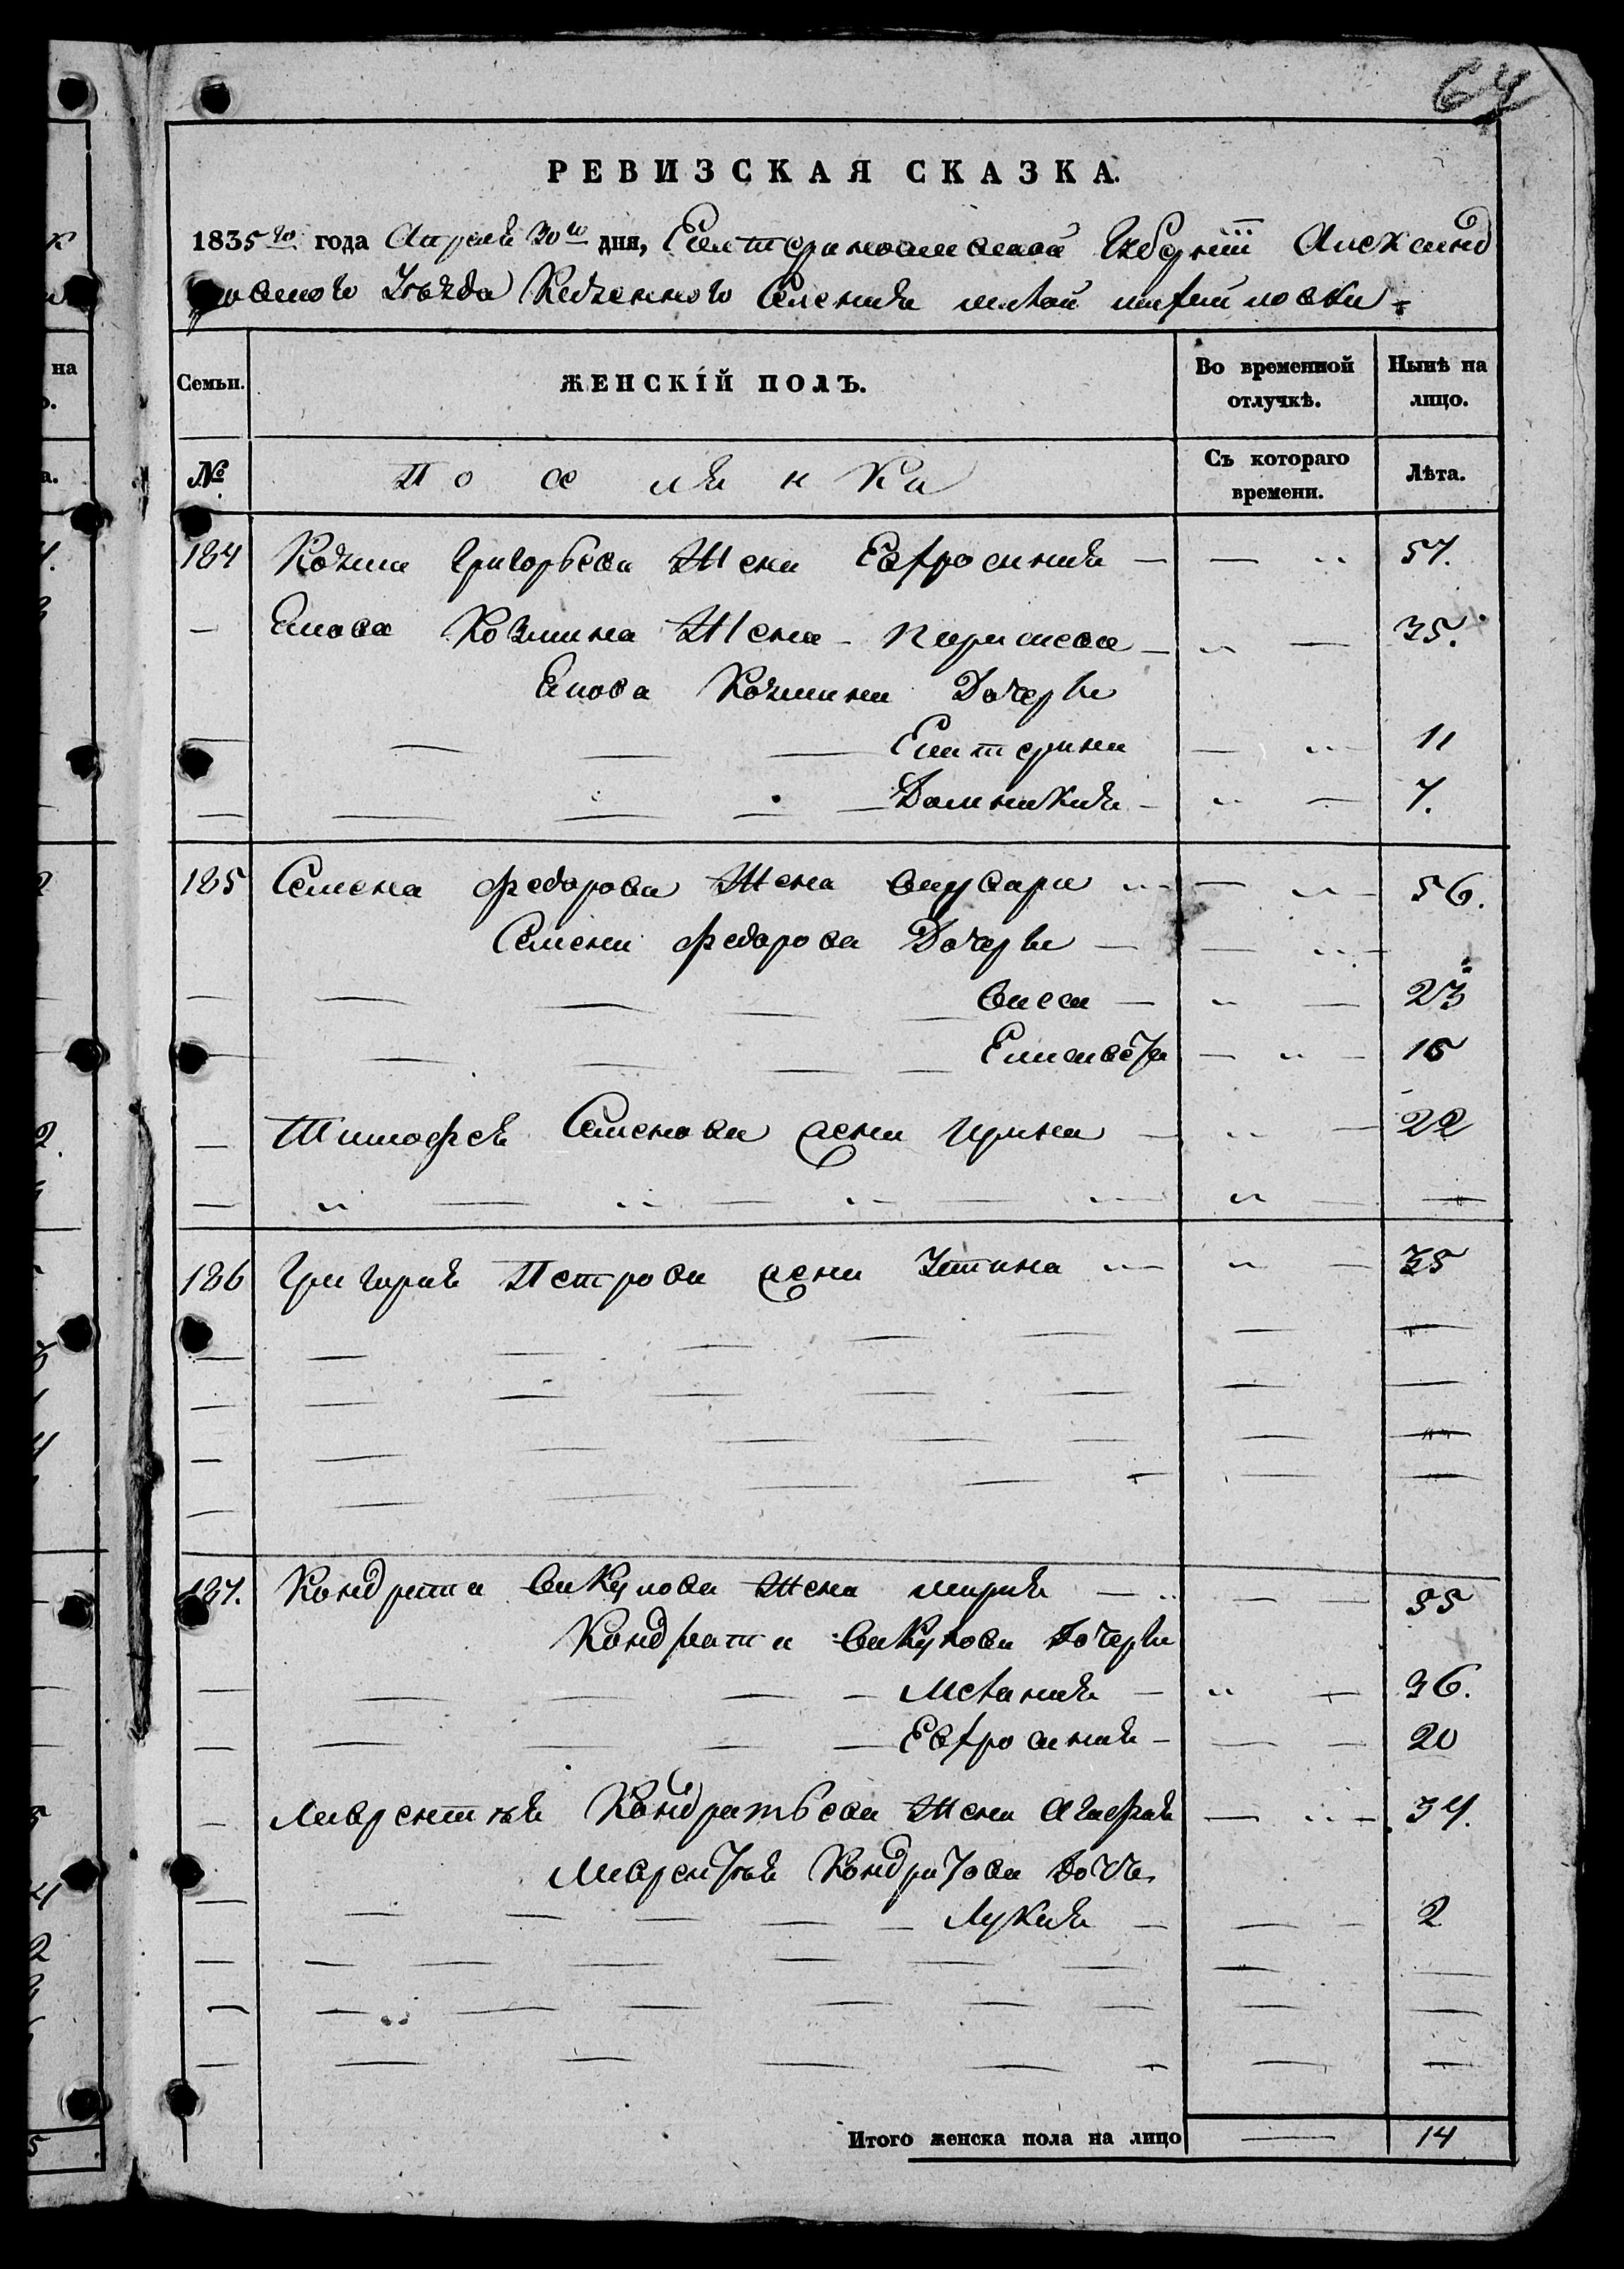 64
РЕВИЗСКАЯ СКАЗКА.
1835го года Апреля 30го дня, Екатеринославской Губернии Александ
ровского Уезда Казенного Селения
Семьи. ЖЕНСКІЙ ПОЛЪ. Во временной отлучкѣ. Нынѣ на лицо.
№ Поселянка Съ котораго времени. Лѣта.
184 Козмы Григорьева Жена Евфросиния 57.
Козмина Жена Параскева 35.
Козмина Дочери
Екатерина 11
Домникия 7.
185 Семена Федорова Жена Варвара 56.
Семена Федорова Дочери
Васса 23
Елисавета 15
Тимофея Семенова жена Ирина 22
186 Григория Петрова жена Устина 35
187. Кондрата Викулова Жена Мария 55
Кондрата Викулова Дочери
Мелания 36.
Евфросиния 20
Лаврентия Кондратьева Жена Агафия 34.
Лаврентия Кондратова Дочь
Лукия 2
Итого женска пола на лицо 14